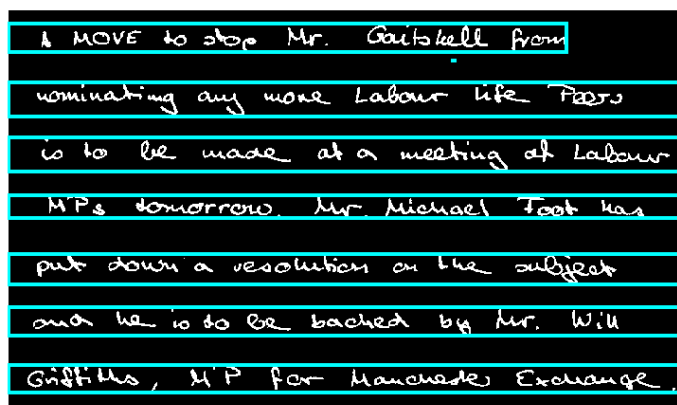 A MOVE to stop Mr. Gaitskell from
nominating any more Labour Life Peers
is to be made at a meeting of Labour
MPs tomorrow. Mr. Michael Foot has
put down a resolution on the subject
and he is to be backed by Mr. Will
Griffiths, MP for Manchester Exchange.